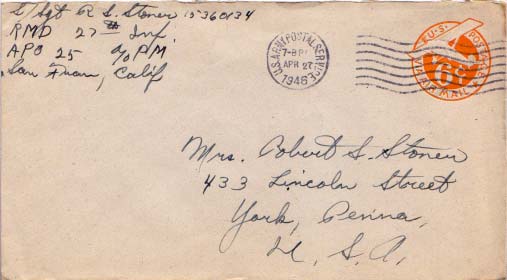 S/Sgt R. S. Stoner 15360134
RMD 27th Inf.
APO 25 c/o PM
San Fran, Calif
U.S. ARMY POSTAL SERVICE
7-8 PM
APR 27
1946
U.S. POSTAGE
6¢
VIA AIR MAIL
Mrs. Robert S. Stoner
433 Lincoln Street
York, Penna,
U. S. A.